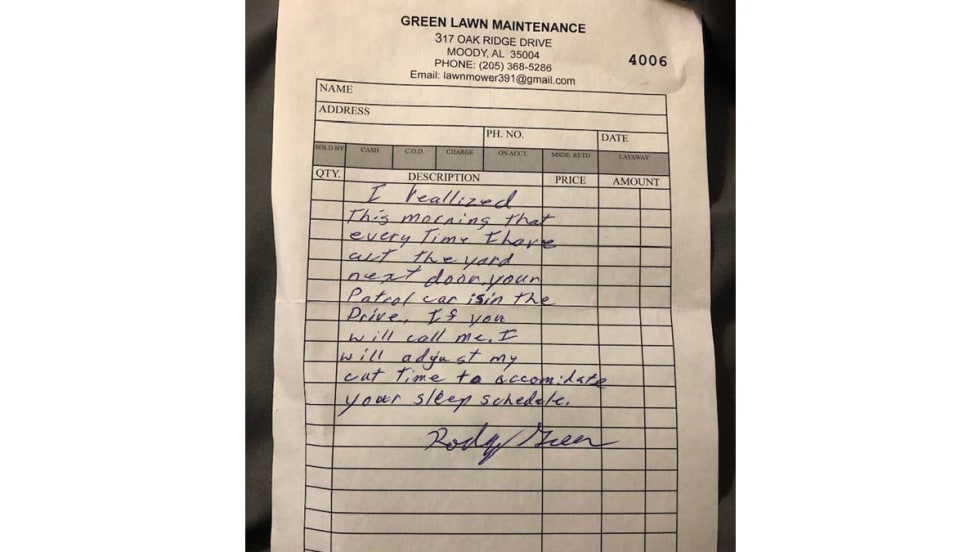 GREEN LAWN MAINTENANCE
317 OAK RIDGE DRIVE
MOODY, AL 35004
PHONE: (205) 368-5286
4006
Email: lawnmower391@gmail.com
NAME
ADDRESS
PH. NO. DATE
SOLD BY CASH C.O.D. CHARGE ON ACCT. MSDE. RETD LAYAWAY
QTY. DESCRIPTION PRICE AMOUNT
I reallized
This morning that
every Time I have
cut the yard
next door, your
Patrol car is in the
Drive, If you
will call me, I
will adjust my
cut Time to accomidate
your sleep schedule.
Rody Green